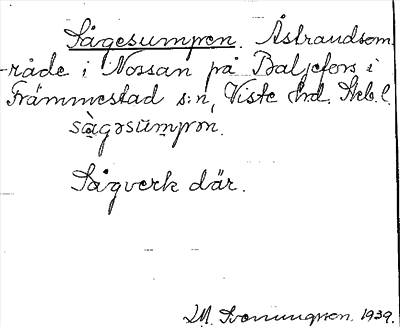 Sågesumpen. Åstrandsom-
råde i Nossan på Baljefors i
Främmestad s:n, Viste hd. Skb. l.
sågəsùmpɷn.
Sågverk där.
1939.